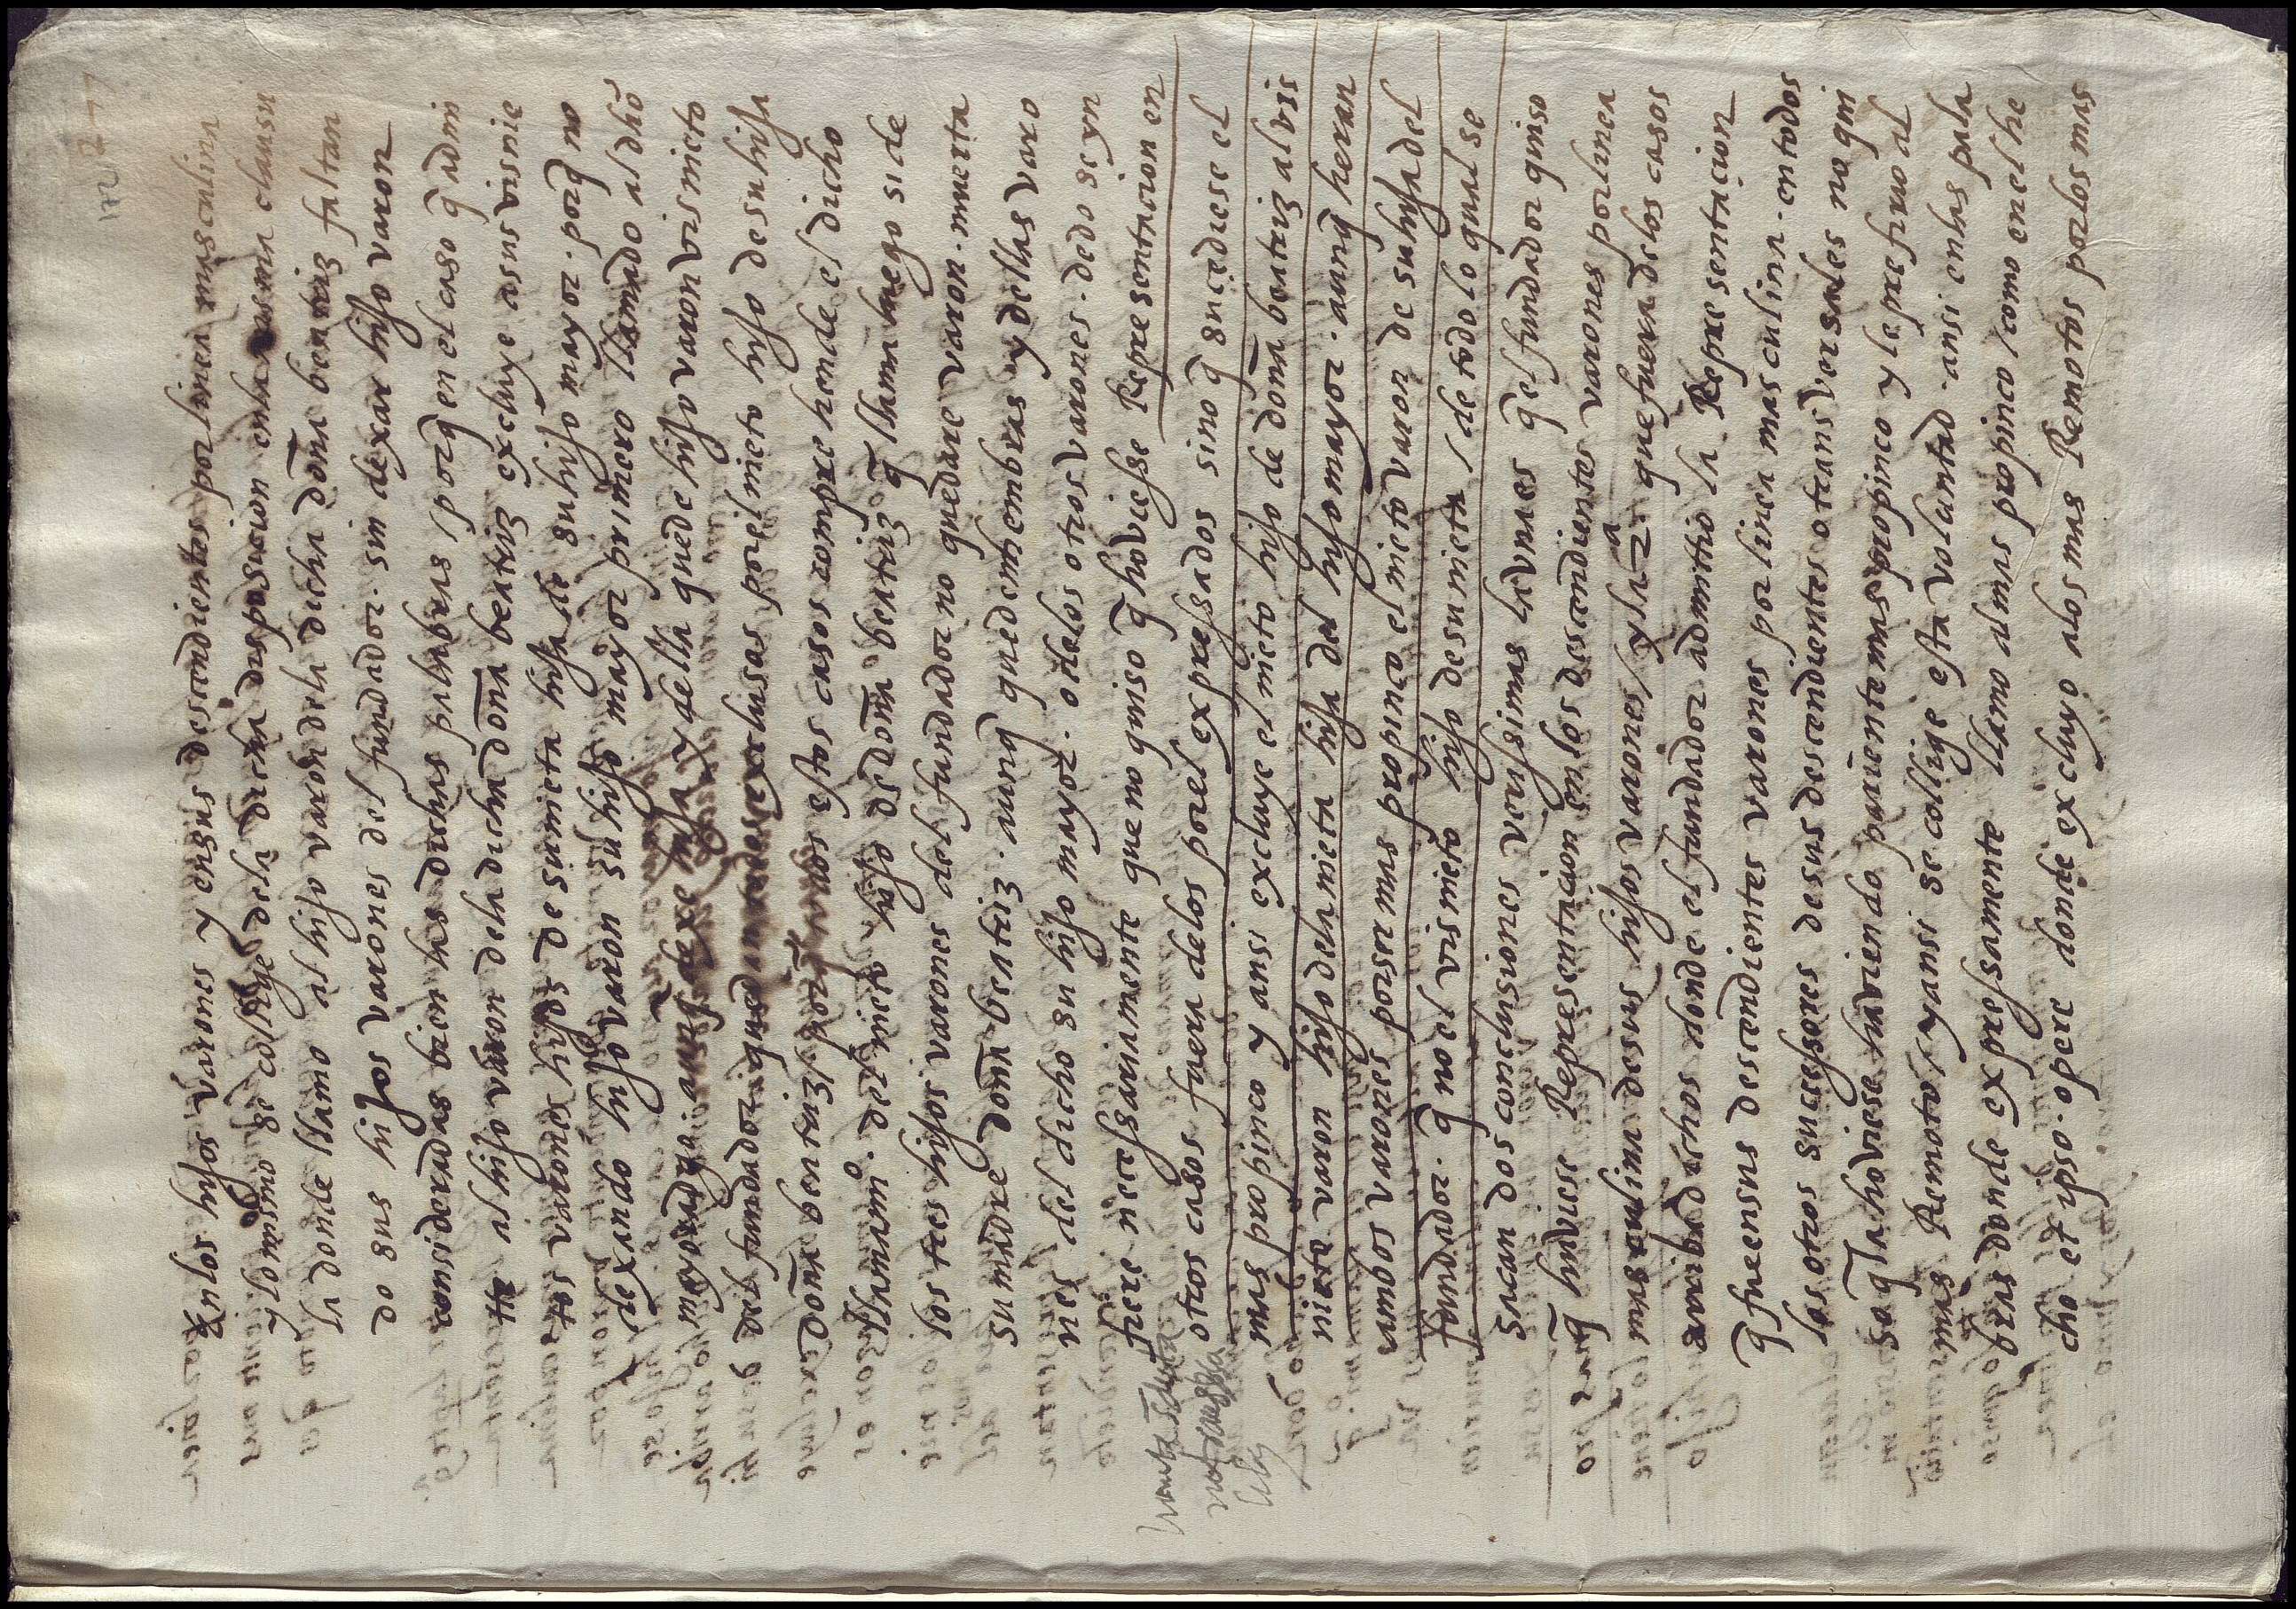 En los hijos varones y en sus descendientes por linea masculina
y lo mismo se collige de la dicha disposicion en la misma clausu
la donde llamo al hijo varon de la dicha doña beatriz faltan
do sus hijos varones del fundador. sin dexar hijo varon
consideradas bien las dichas palabras / porq̃ en el caso q̃ admi
tte al hijo varon de la dicha doña beatriz excluye a sus visnie
tos varones hijos de su nieta hija de su hijo mayor. porq̃ no
dexando hijo varon su hijo mayor primero llamado al dho
mayoradgo aunq̃ dexe hija y della quede hijo varon visnieto
del fundador quedan todos exclusos por el nieto hijo de su hija
doña beatriz / porq̃ todos estos casos comprehende el dicho
llamamᵒ. del nieto hijo de doña beatriz q̃ llama luego si de
los tres hijos varones del fundador no quedare varon. muerta
su madre doña beatriz. aunq̃ queden hembras y dellas varo
nes del dicho su hijo mayor. o de los otros varones. de do seyn
fiere necessariamente que no quiso q̃ hoviesse Representacion en
otros casos fuera de los por el expressados sino q̃ sucediese el
mas propinco y ansi excluye el nieto hijo de doña beatriz al vis
nieto varon hijo de la nieta hija del hijo mayor. aunq̃ heran
ambos varones por ser mas propinco el nieto varon de su hija del
fundador. q̃ no el visnieto hijo de su nieta / de todo lo qual se
sacan dos conclusiones verissimas la vna es q̃ el fundador quiso
q̃ huviese Representacion en los descendientes varones por linea
masculina de sus hijos varones / y la 2ᵃ. que fuera de los casos
arriba dichos donde el fundador admitio la Representacion
q̃ fue en sus descendientes varones por linea masculina. en todos
los otros sucessores de sus descendientes o transversales no qui
so q̃ la hoviese haviendo pariente mas propinco y le prefirio al
mas Remoto / y ansi se collige esta voluntad. ansi en las pala
bras donde expressamente llamo al mas propinco / como en el he
cho et ipso. opere donde excluyo a los mas Remotos por los mas